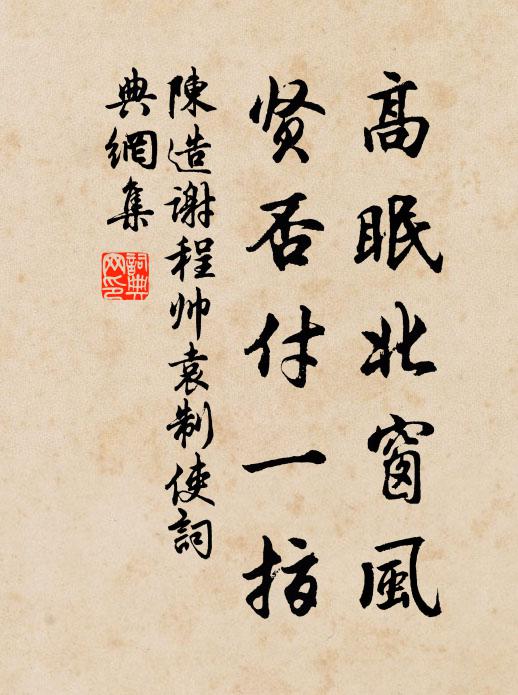 高眠北窗風
贤否付一指
陳造謝程帅袁制使詞
典網集
詞典
网印